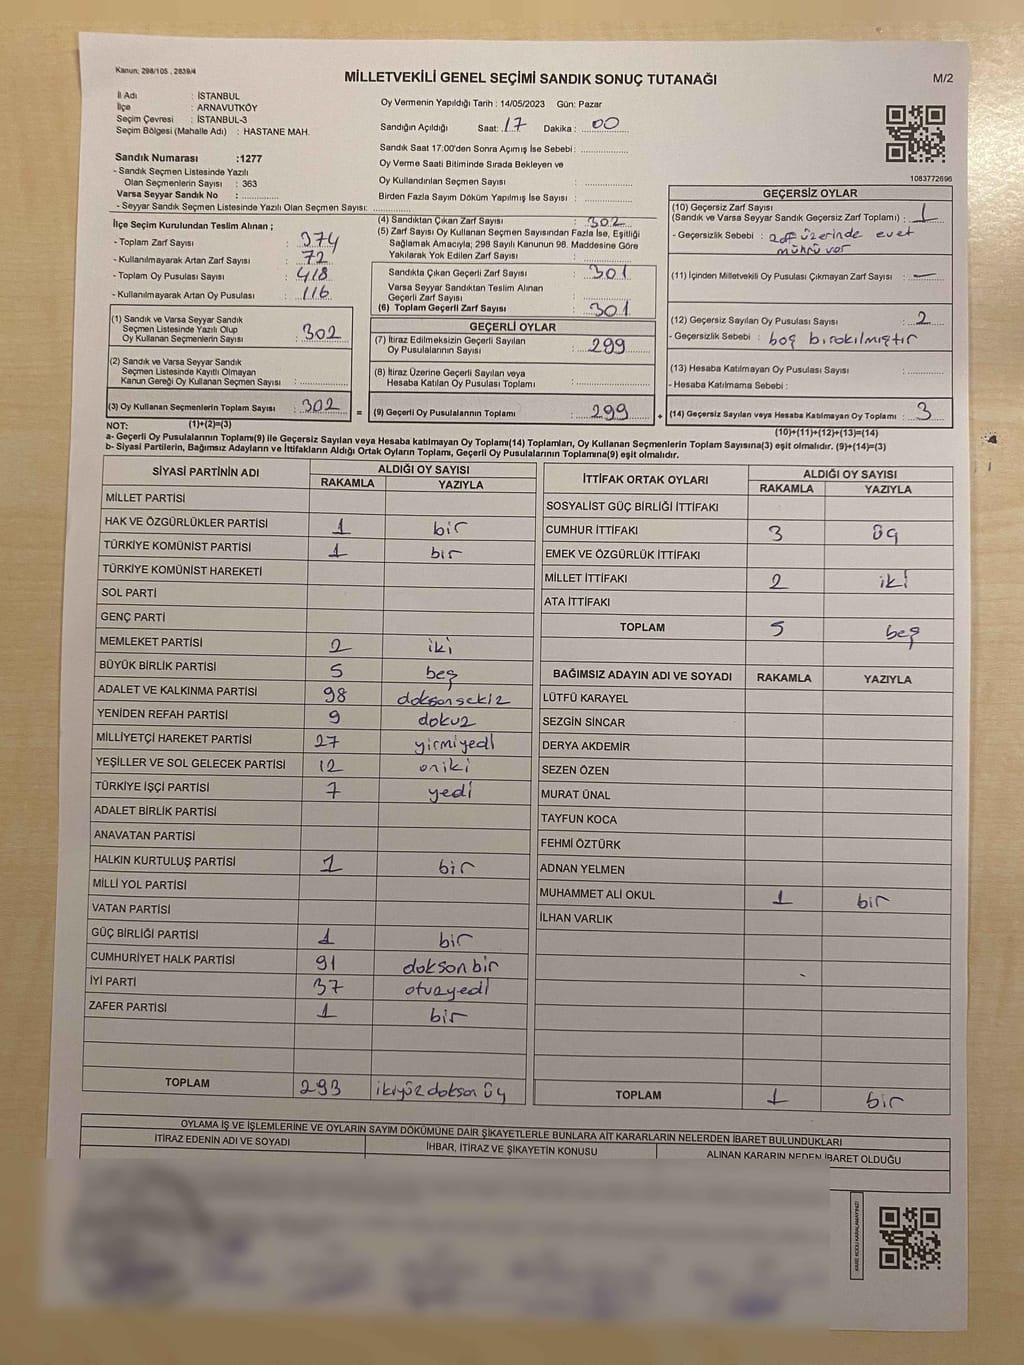 Kanun: 298/105 , 2839/4
MİLLETVEKİLİ GENEL SEÇİMİ SANDIK SONUÇ TUTANAĞI
M/2
İl Adı : İSTANBUL
İlçe : ARNAVUTKÖY
Seçim Çevresi : İSTANBUL-3
Seçim Bölgesi (Mahalle Adı) : HASTANE MAH.
Sandık Numarası :1277
- Sandık Seçmen Listesinde Yazılı
Olan Seçmenlerin Sayısı : 363
Varsa Seyyar Sandık No :
- Seyyar Sandık Seçmen Listesinde Yazılı Olan Seçmen Sayısı:
Oy Vermenin Yapıldığı Tarih : 14/05/2023 Gün: Pazar
Sandığın Açıldığı Saat: 17 Dakika : 00
Sandık Saat 17:00'den Sonra Açımış İse Sebebi :
Oy Verme Saati Bitiminde Sırada Bekleyen ve
Oy Kullandırılan Seçmen Sayısı :
Birden Fazla Sayım Döküm Yapılmış İse Sayısı :
1083772696
İlçe Seçim Kurulundan Teslim Alınan ;
- Toplam Zarf Sayısı : 374
- Kullanılmayarak Artan Zarf Sayısı : 72
- Toplam Oy Pusulası Sayısı : 418
- Kullanılmayarak Artan Oy Pusulası : 116
(1) Sandık ve Varsa Seyyar Sandık
Seçmen Listesinde Yazılı Olup
Oy Kullanan Seçmenlerin Sayısı : 302
(2) Sandık ve Varsa Seyyar Sandık
Seçmen Listesinde Kayıtlı Olmayan
Kanun Gereği Oy Kullanan Seçmen Sayısı :
(3) Oy Kullanan Seçmenlerin Toplam Sayısı : 302 =
(1)+(2)=(3)
(4) Sandıktan Çıkan Zarf Sayısı : 302
(5) Zarf Sayısı Oy Kullanan Seçmen Sayısından Fazla İse, Eşitliği
Sağlamak Amacıyla; 298 Sayılı Kanunun 98. Maddesine Göre
Yakılarak Yok Edilen Zarf Sayısı :
Sandıkta Çıkan Geçerli Zarf Sayısı : 301
Varsa Seyyar Sandıktan Teslim Alınan
Geçerli Zarf Sayısı :
(6) Toplam Geçerli Zarf Sayısı : 301
GEÇERLİ OYLAR
(7) İtiraz Edilmeksizin Geçerli Sayılan
Oy Pusulalarının Sayısı : 299
(8) İtiraz Üzerine Geçerli Sayılan veya
Hesaba Katılan Oy Pusulası Toplamı :
(9) Geçerli Oy Pusulalarının Toplamı : 299 +
GEÇERSİZ OYLAR
(10) Geçersiz Zarf Sayısı
(Sandık ve Varsa Seyyar Sandık Geçersiz Zarf Toplamı) : 1
- Geçersizlik Sebebi : zarf üzerinde evet
mührü var
(11) İçinden Milletvekili Oy Pusulası Çıkmayan Zarf Sayısı : —
(12) Geçersiz Sayılan Oy Pusulası Sayısı : 2
- Geçersizlik Sebebi : boş bırakılmıştır
(13) Hesaba Katılmayan Oy Pusulası Sayısı :
- Hesaba Katılmama Sebebi :
(14) Geçersiz Sayılan veya Hesaba Katılmayan Oy Toplamı : 3
(10)+(11)+(12)+(13)=(14)
NOT:
a- Geçerli Oy Pusulalarının Toplamı(9) ile Geçersiz Sayılan veya Hesaba katılmayan Oy Toplamı(14) Toplamları, Oy Kullanan Seçmenlerin Toplam Sayısına(3) eşit olmalıdır. (9)+(14)=(3)
b- Siyasi Partilerin, Bağımsız Adayların ve İttifakların Aldığı Ortak Oyların Toplamı, Geçerli Oy Pusulalarının Toplamına(9) eşit olmalıdır.
SİYASİ PARTİNİN ADI ALDIĞI OY SAYISI
RAKAMLA YAZIYLA
MİLLET PARTİSİ
HAK VE ÖZGÜRLÜKLER PARTİSİ 1 bir
TÜRKİYE KOMÜNİST PARTİSİ 1 bir
TÜRKİYE KOMÜNİST HAREKETİ
SOL PARTİ
GENÇ PARTİ
MEMLEKET PARTİSİ 2 iki
BÜYÜK BİRLİK PARTİSİ 5 beş
ADALET VE KALKINMA PARTİSİ 98 doksansekiz
YENİDEN REFAH PARTİSİ 9 dokuz
MİLLİYETÇİ HAREKET PARTİSİ 27 yirmiyedi
YEŞİLLER VE SOL GELECEK PARTİSİ 12 oniki
TÜRKİYE İŞÇİ PARTİSİ 7 yedi
ADALET BİRLİK PARTİSİ
ANAVATAN PARTİSİ
HALKIN KURTULUŞ PARTİSİ 1 bir
MİLLİ YOL PARTİSİ
VATAN PARTİSİ
GÜÇ BİRLİĞİ PARTİSİ 1 bir
CUMHURİYET HALK PARTİSİ 91 doksan bir
İYİ PARTİ 37 otuzyedi
ZAFER PARTİSİ 1 bir
TOPLAM 293 ikiyüz doksan üç
İTTİFAK ORTAK OYLARI ALDIĞI OY SAYISI
RAKAMLA YAZIYLA
SOSYALİST GÜÇ BİRLİĞİ İTTİFAKI
CUMHUR İTTİFAKI 3 üç
EMEK VE ÖZGÜRLÜK İTTİFAKI
MİLLET İTTİFAKI 2 iki
ATA İTTİFAKI
TOPLAM 5 beş
BAĞIMSIZ ADAYIN ADI VE SOYADI RAKAMLA YAZIYLA
LÜTFÜ KARAYEL
SEZGİN SİNCAR
DERYA AKDEMİR
SEZEN ÖZEN
MURAT ÜNAL
TAYFUN KOCA
FEHMİ ÖZTÜRK
ADNAN YELMEN
MUHAMMET ALİ OKUL 1 bir
İLHAN VARLIK
TOPLAM 1 bir
OYLAMA İŞ VE İŞLEMLERİNE VE OYLARIN SAYIM DÖKÜMÜNE DAİR ŞİKAYETLERLE BUNLARA AİT KARARLARIN NELERDEN İBARET BULUNDUKLARI
İTİRAZ EDENİN ADI VE SOYADI İHBAR, İTİRAZ VE ŞİKAYETİN KONUSU ALINAN KARARIN NEDEN İBARET OLDUĞU
KARE KODU KARALAMAYINIZ!